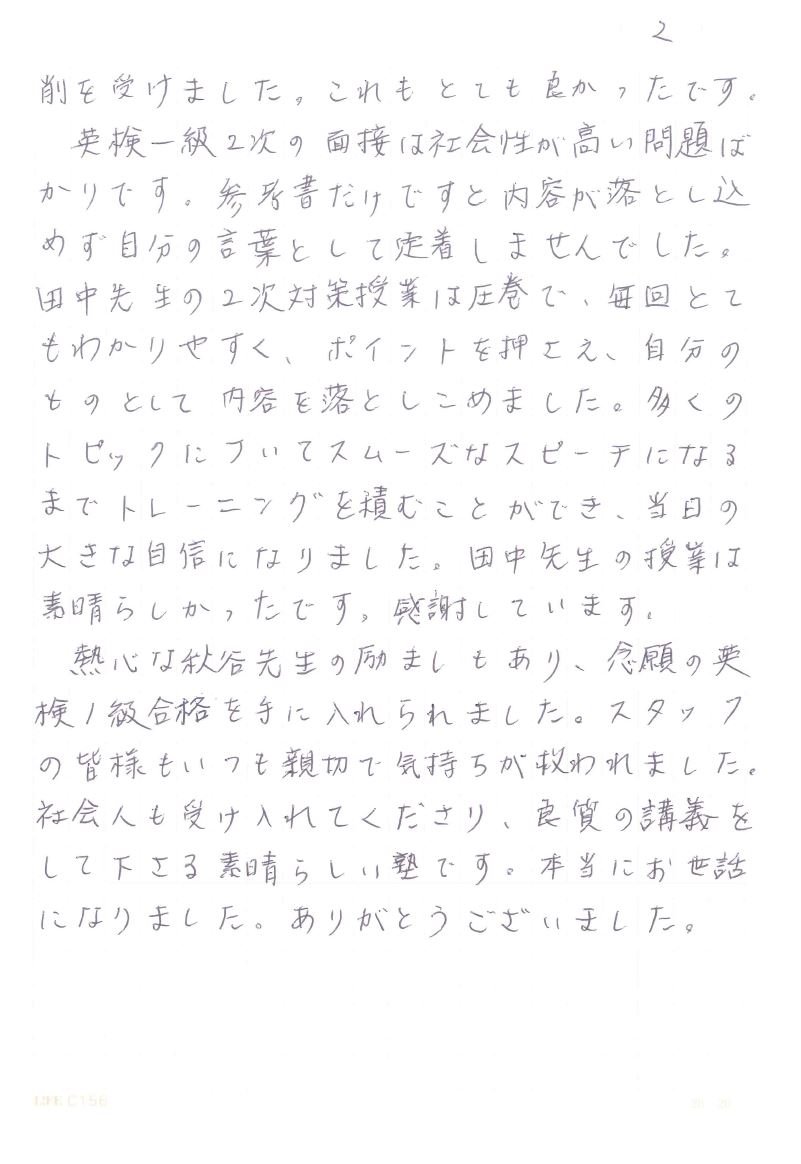 2
削を受けました。これもとても良かったです。
英検一級2次の面接は社会性が高い問題ば
かりです。参考書だけですと内容が落とし込
めず自分の言葉として定着しませんでした。
田中先生の2次対策授業は圧巻で、毎回とて
もわかりやすく、ポイントを押さえ、自分の
ものとして内容を落としこめました。多くの
トピックについてスムーズなスピーチになる
までトレーニングを積むことができ、当日の
大きな自信になりました。田中先生の授業は
素晴らしかったです。感謝しています。
熱心な秋谷先生の励ましもあり、念願の英
検1級合格を手に入れられました。スタッフ
の皆様もいつも親切で気持ちが救われました。
社会人も受け入れてくださり、良質の講義を
して下さる素晴らしい塾です。本当にお世話
になりました。ありがとうございました。
LIFE C156
20 20